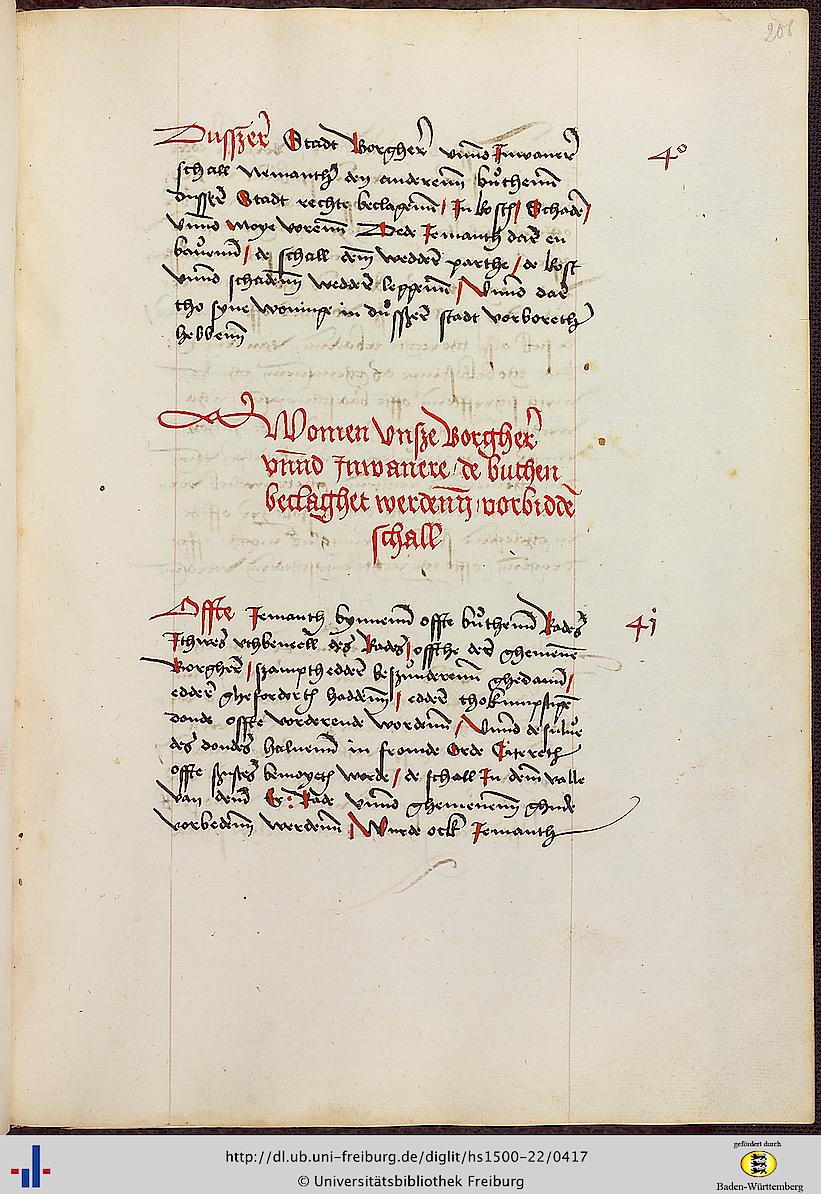 208
Dusszer Stadt Borgher vnnd Inwaner
4o
schall nemanth den anderenn buthenn
dusser Stadt rechte beclagenn / In kost / Schaden /
vnnd moye vorenn Dede Jemanth dar en
bauenn / de schall dem wedder parthe / de kost
vnnd schadenn wedder leggenn / Vnnd dar
tho syne woninge in dusszer stadt vorboreth
hebbenn
Women vnsze Borgher
vnnd Inwanere, de buthen
beclaghet werdenn, vorbidden
schall
Offte Jemanth bynnenn offte buthenn Rades
4j
Ichtwes vthbeuell des Rades / offthe der ghemenen
Borgher / szampth edder beszunderenn ghedann /
edder ghefordert haddenn / edder thokumpftigen
donde offte vorderende wordenn / Vnnd desulue
des dondes haluenn in fromde Orde Citereth
offte sust bemoyet worde / de schall In dem valle
van dem Er: Rade vnnd ghemenenn ghude
vorbedenn werdenn / Wurde ock Jemanth
http://dl.ub.uni-freiburg.de/diglit/hs1500-22/0417
© Universitätsbibliothek Freiburg
gefördert durch
Baden-Württemberg